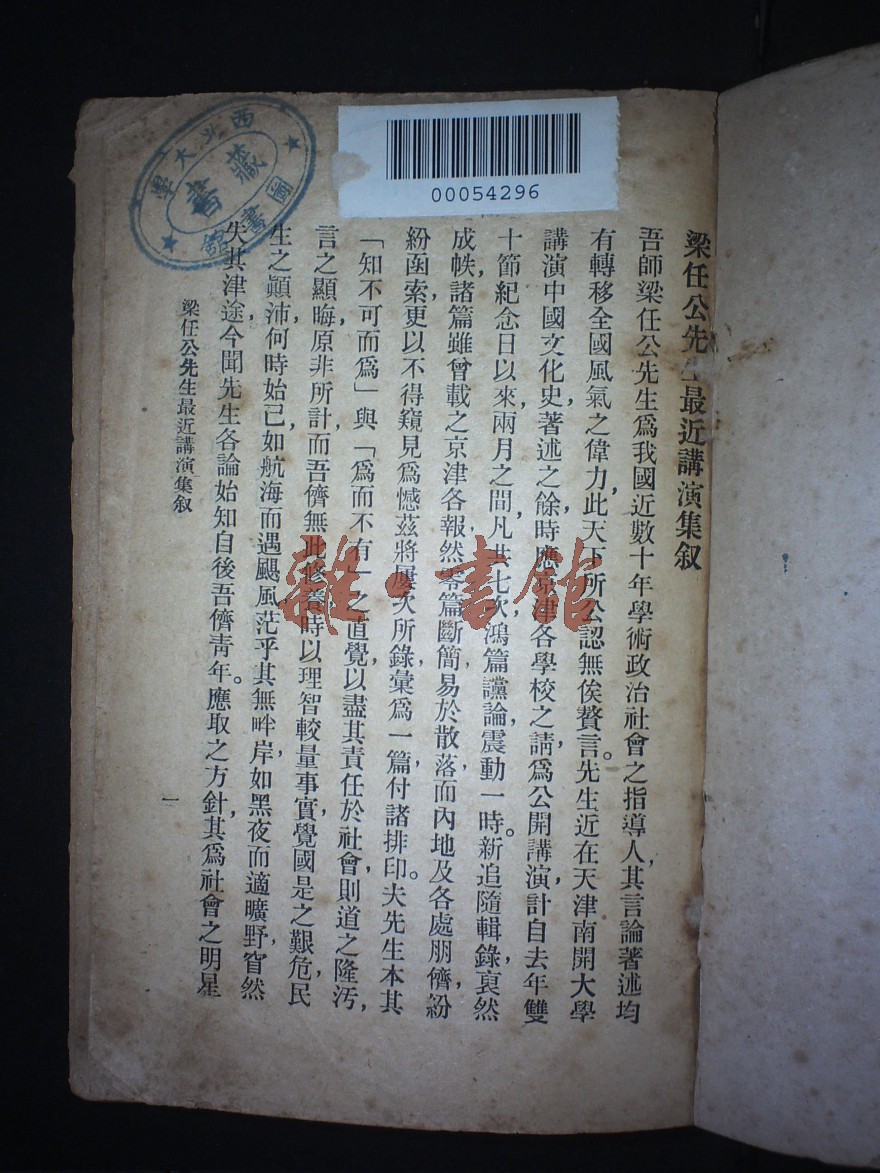 梁任公先生最近講演集叙
吾師梁任公先生爲我國近數十年學術政治社會之指導人，其言論著述均
有轉移全國風氣之偉力，此天下所公認無俟贅言。先生近在天津南開大學
講演中國文化史，著述之餘，時應京津各學校之請，爲公開講演，計自去年雙
十節紀念日以來，兩月之間，凡共七次，鴻篇讜論，震動一時。新追隨輯錄，裒然
成帙，諸篇雖曾載之京津各報，然零篇斷簡，易於散落，而內地及各處朋儕，紛
紛函索，更以不得窺見爲憾，茲將屢次所錄，彙爲一篇，付諸排印。夫先生本其
「知不可而爲」與「爲而不有」之直覺，以盡其責任於社會，則道之隆汚，
言之顯晦，原非所計，而吾儕無此修養，時以理智較量事實，覺國是之艱危，民
生之顚沛，何時始已，如航海而遇颶風，茫乎其無畔岸，如黑夜而適曠野，窅然
失其津途，今聞先生各論，始知自後吾儕靑年。應取之方針，其爲社會之明星
梁任公先生最近講演集叙
一
00054296
西北大學圖書館
藏書
雜·書館